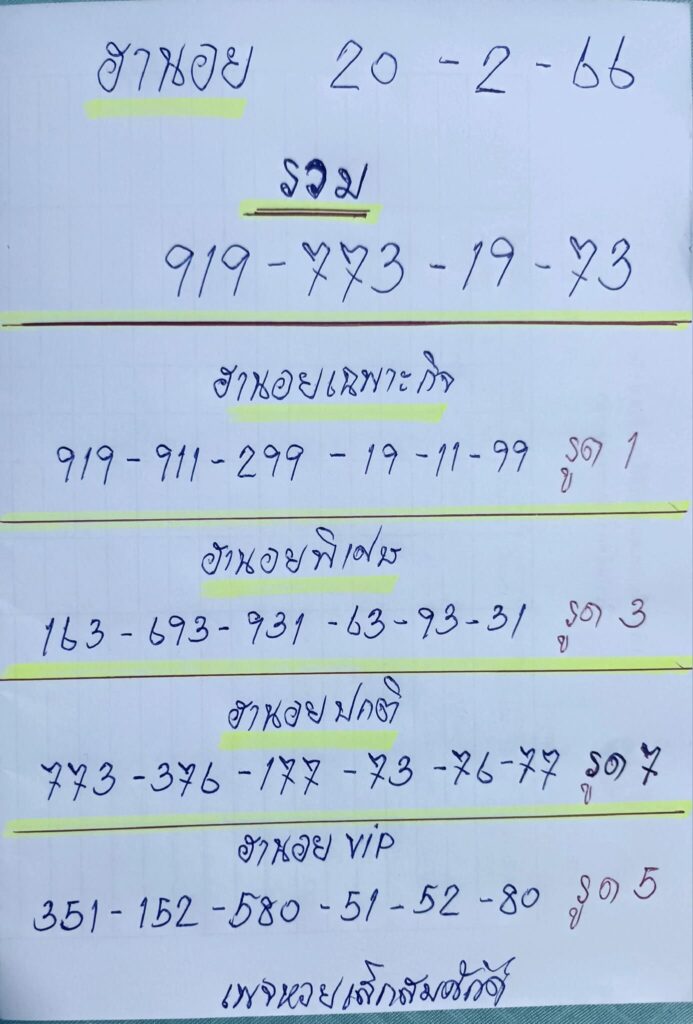 ฮานอย 20 - 2 - 66
รวม
919 - 773 - 19 - 73
ฮานอยเฉพาะกิจ
919 - 911 - 299 - 19 - 11 - 99 รูด 1
ฮานอยพิเศษ
163 - 693 - 931 - 63 - 93 - 31 รูด 3
ฮานอยปกติ
773 - 376 - 177 - 73 - 76 - 77 รูด 7
ฮานอย VIP
351 - 152 - 580 - 51 - 52 - 80 รูด 5
เพจหวยเล็กสมศักดิ์